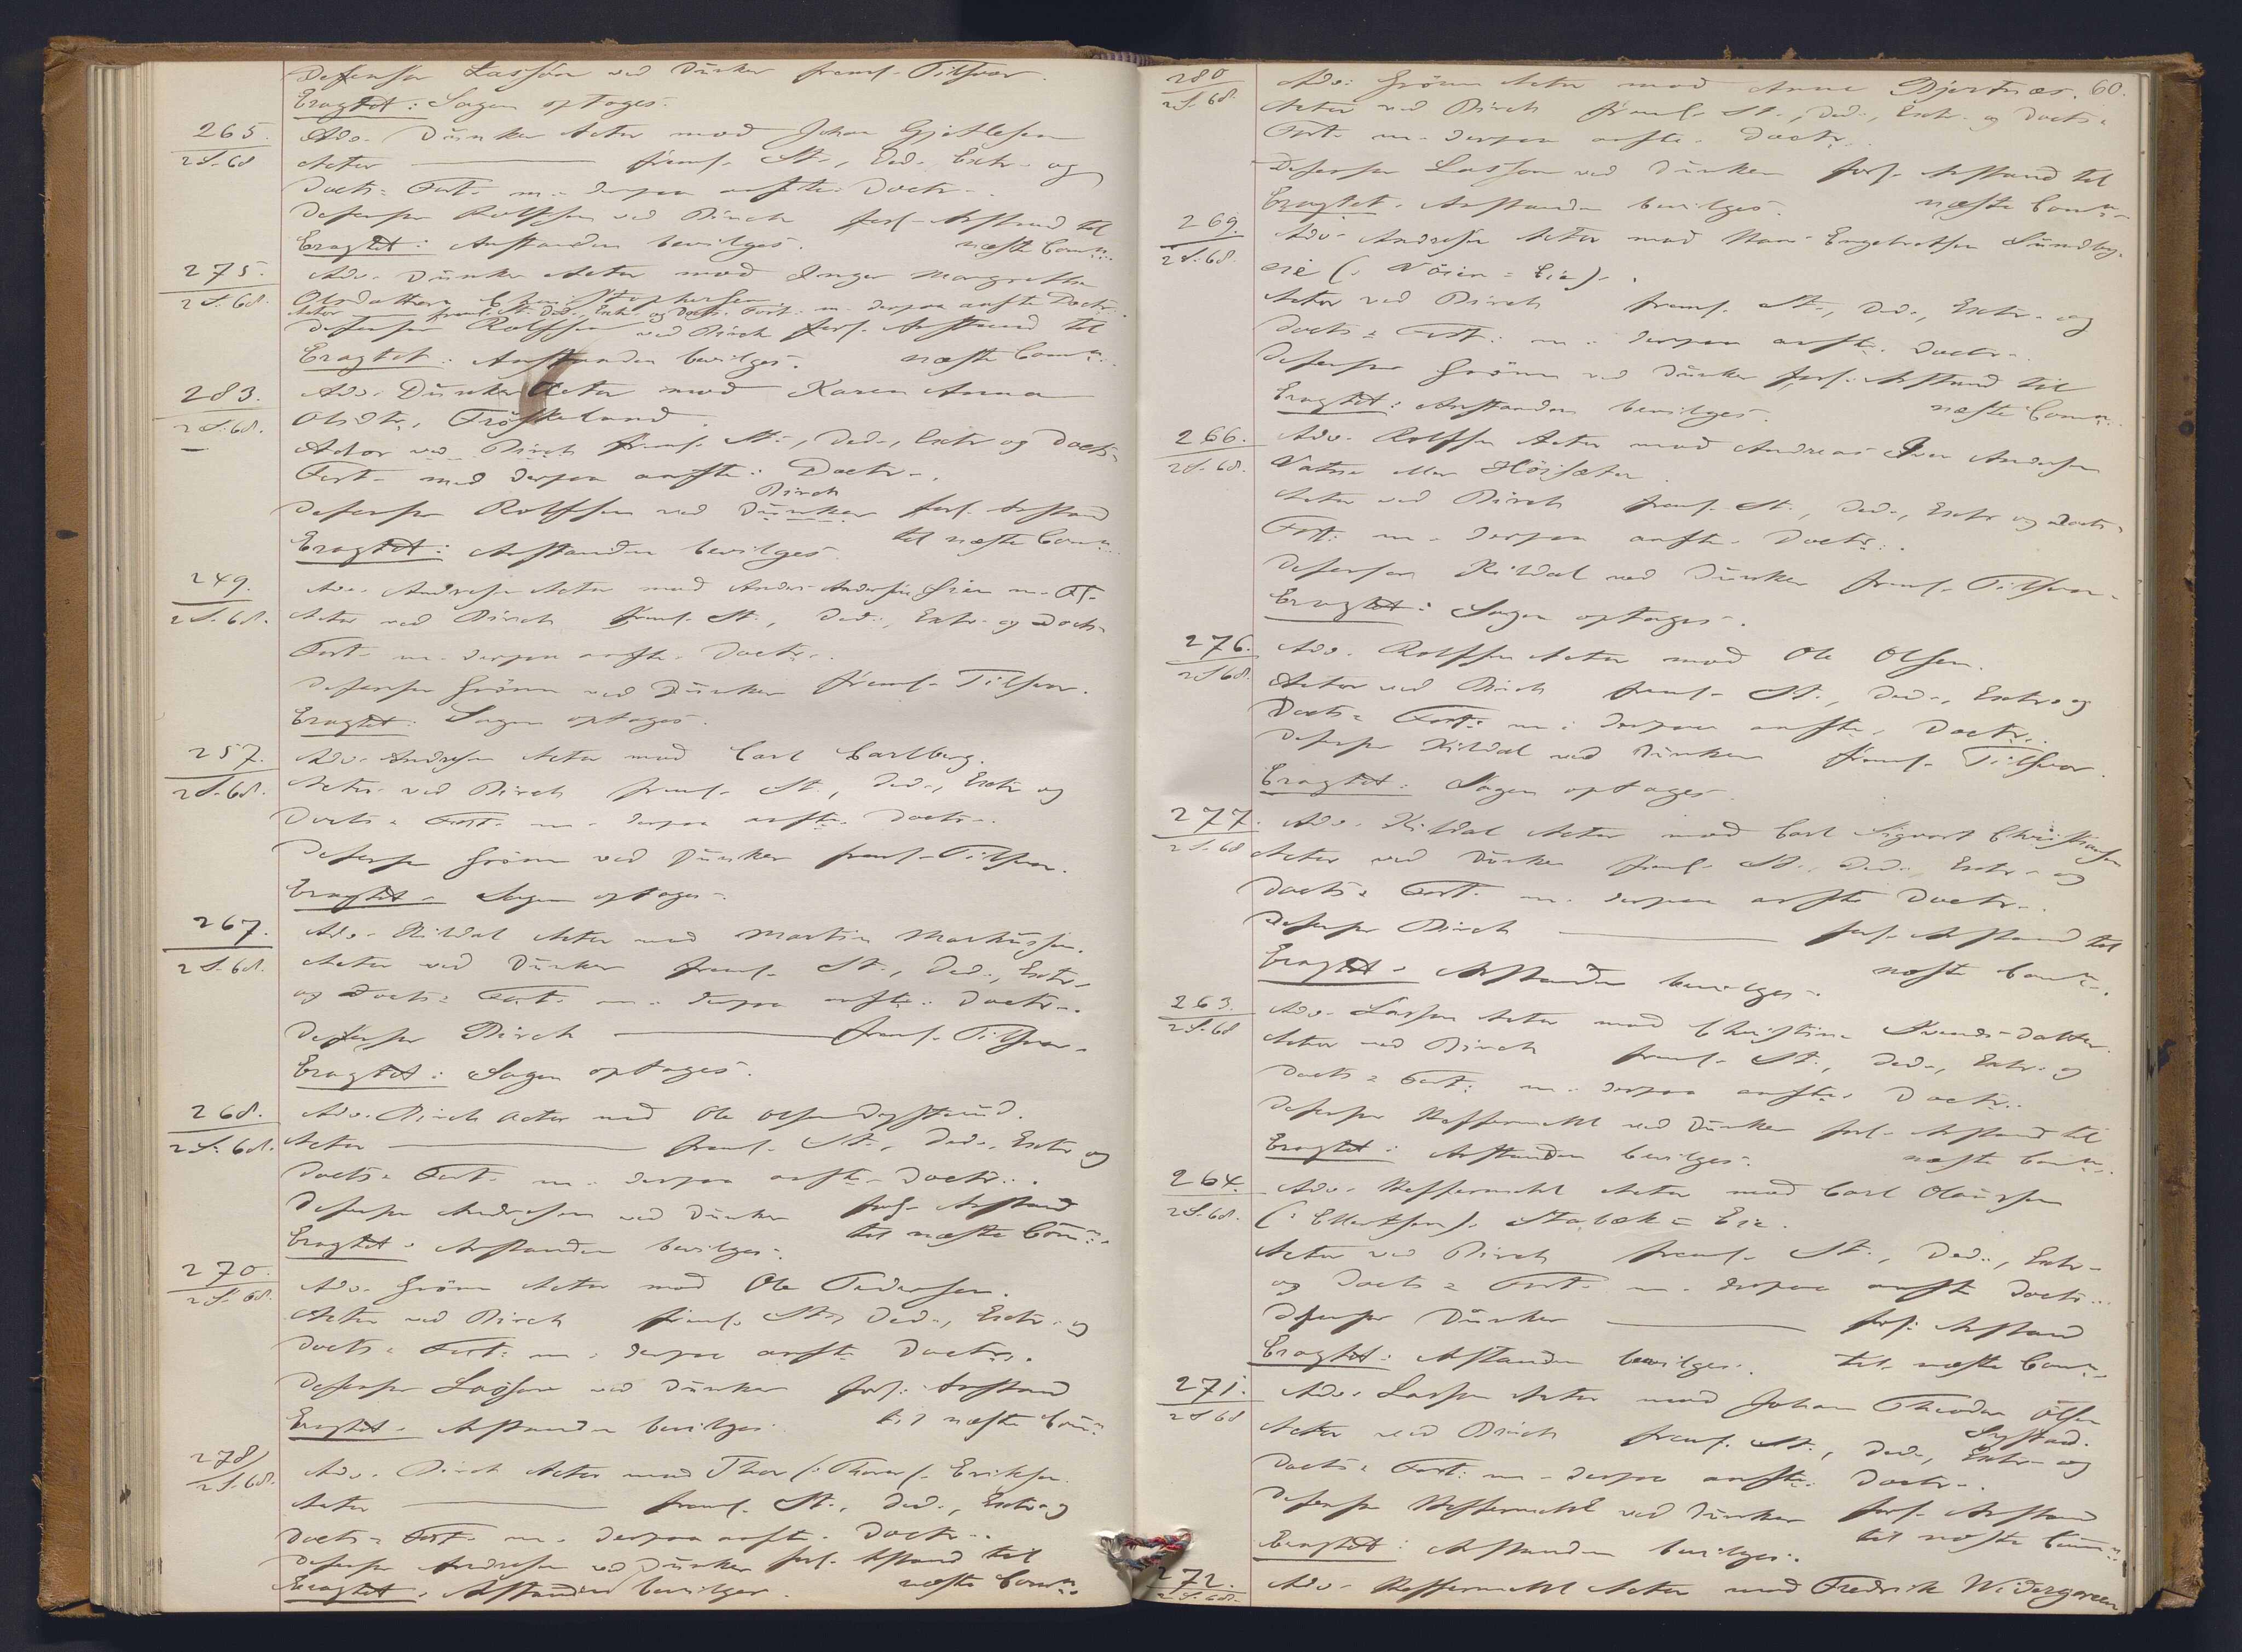 Defensor Lassön ved Dünker freml. Tilsvar.
Eragtet: Sagen optages.
265.
2 S. 68
Adv. Dünker Actor mod Johan Gjertsen
Actor ——— freml. St., Ded., Extr. og
Docts= Fort. m. derpaa anfte. Doctr.
Defensor Rolfsen ved Birch forl. Anstand til
Eragtet: Anstanden bevilges. næste Conn.
275.
2 S. 68.
Adv. Dünker Actor mod Inger Margrethe
Olsdatter
Actor ——— freml. St. Ded., Extr. og Docts. Fort. m. derpaa anfte Doctr.
Defensor Rolfsen ved Birch forl. Anstand til
Eragtet: Anstanden bevilges. næste Conn.
283.
2 S. 68.
Adv. Dünker Actor mod Karen Anna
Olsdtr. Fröskeland.
Actor ved Birch freml. St., Ded., Extr og Docts=
Fort. med derpaa anfte: Doctr.
Birch
Defensor Rolfsen ved Dünker forl. Anstand
Eragtet: Anstanden bevilges. til næste Conn.
249.
2 S. 68.
Adv. Andresen Actor mod Anders Andersen Grien m. Fl.
Actor ved Birch freml. St., Ded., Extr. og Docts=
Fort. m. derpaa anfte. Doctr.
Defensor Grönn ved Dünker freml. Tilsvar.
Eragtet: Sagen optages.
257.
2 S. 68.
Adv. Andresen Actor mod Carl Carlberg.
Actor ved Birch freml. St., Ded., Extr og
Docts= Fort. m. derpaa anfte. Doctr.
Defensor Grönn ved Dünker freml. Tilsvar.
Eragtet. Sagen optages.
267.
2 S. 68.
Adv. Kildal Actor mod Martin Markussen.
Actor ved Dünker freml. St., Ded., Extr.
og Docts= Fort. m. derpaa anfte. Doctr.
Defensor Birch ——— freml. Tilsvar.
Eragtet: Sagen optages.
268.
2 S. 68.
Adv. Birch Actor mod Ole Olsen Dystsund.
Actor ——— freml. St., Ded., Extr og
Docts= Fort. m. derpaa anfte. Doctr.
Defensor Andresen ved Dünker forl. Anstand
Eragtet. Anstanden bevilges. til næste Conn.
270.
2 S. 68.
Adv. Grönn Actor mod Ole Pedersen.
Actor ved Birch freml. St., Ded., Extr. og
Docts= Fort: m. derpaa anfte Doctr.
Defensor Lassön ved Dünker forl. Anstand
Eragtet. Anstanden bevilges. til næste Conn.
278.
2 S. 68.
Adv. Birch Actor mod Thor (: Thorer) Eriksen.
Actor ——— freml. St., Ded., Extr og
Docts= Fort. m. derpaa anfte. Doctr.
Defensor Andresen ved Dünker forl. Anstand til
Eragtet. Anstanden bevilges. næste Conn.
280
2 S. 68.
Adv. Grönn Actor mod Anne Bjertnæs. 60.
Actor ved Birch freml. St., Ded., Extr. og Docts=
Fort. m. derpaa anfte. Doctr.
Defensor Lassön ved Dünker forl. Anstand til
Eragtet. Anstanden bevilges. næste Conn.
269.
2 S. 68.
Adv. Andresen Actor mod Hans Engebretsen Sundby-
eie (: Nöien=Eie).
Actor ved Birch freml. St., Ded., Extr. og
Docts= Fort: m. derpaa anfte. Doctr.
Defensor Grönn ved Dünker forl. Anstand til
Eragtet: Anstanden bevilges. næste Conn.
266.
2 S. 68.
Adv. Rolfsen Actor mod Andreas Iver Andersen
Vatne eller Höisæter.
Actor ved Birch freml. St., Ded., Extr og Docts=
Fort: m. derpaa anfte. Doctr.
Defensor Kildal ved Dünker freml. Tilsvar.
Eragtet: Sagen optages.
276.
2 S. 68.
Adv. Rolfsen Actor mod Ole Olsen.
Actor ved Birch freml. St., Ded., Extr. og
Docts= Fort: m. derpaa anfte. Doctr.
Defensor Kildal ved Dünker freml. Tilsvar.
Eragtet: Sagen optages.
277.
2 S. 68
Adv. Kildal Actor mod Carl Sigvart Christiansen
Actor ved Dünker freml. St., Ded., Extr. og
Docts= Fort. m. derpaa anfte Doctr.
Defensor Birch ——— forl. Anstand til
Eragtet. Anstanden bevilges. næste Conn.
263.
2 S. 68
Adv. Lassön Actor mod Christine Svendsdatter.
Actor ved Birch freml. St., Ded., Extr. og
Docts= Fort: m. derpaa anfte. Doctr.
Defensor Heffermehl ved Dünker forl. Anstand til
Eragtet: Anstanden bevilges. næste Conn.
264.
2 S. 68.
Adv. Heffermehl Actor mod Carl Olaussen
(: Ellertsen). Stabæk=Eie.
Actor ved Birch freml. St., Ded., Extr.
og Docts= Fort. m. derpaa anfte Doctr.
Defensor Dünker ——— forl. Anstand
Eragtet: Anstanden bevilges. til næste Conn.
271.
2 S. 68
Adv. Lassön Actor mod Johan Theodor Olsen
Systad.
Actor ved Birch freml. St., Ded., Extr. og
Docts= Fort: m. derpaa anfte. Doctr.
Defensor Heffermehl ved Dünker forl. Anstand
Eragtet: Anstanden bevilges. til næste Conn.
272.
2 S. 68.
Adv. Heffermehl Actor mod Fredrik Widergreen